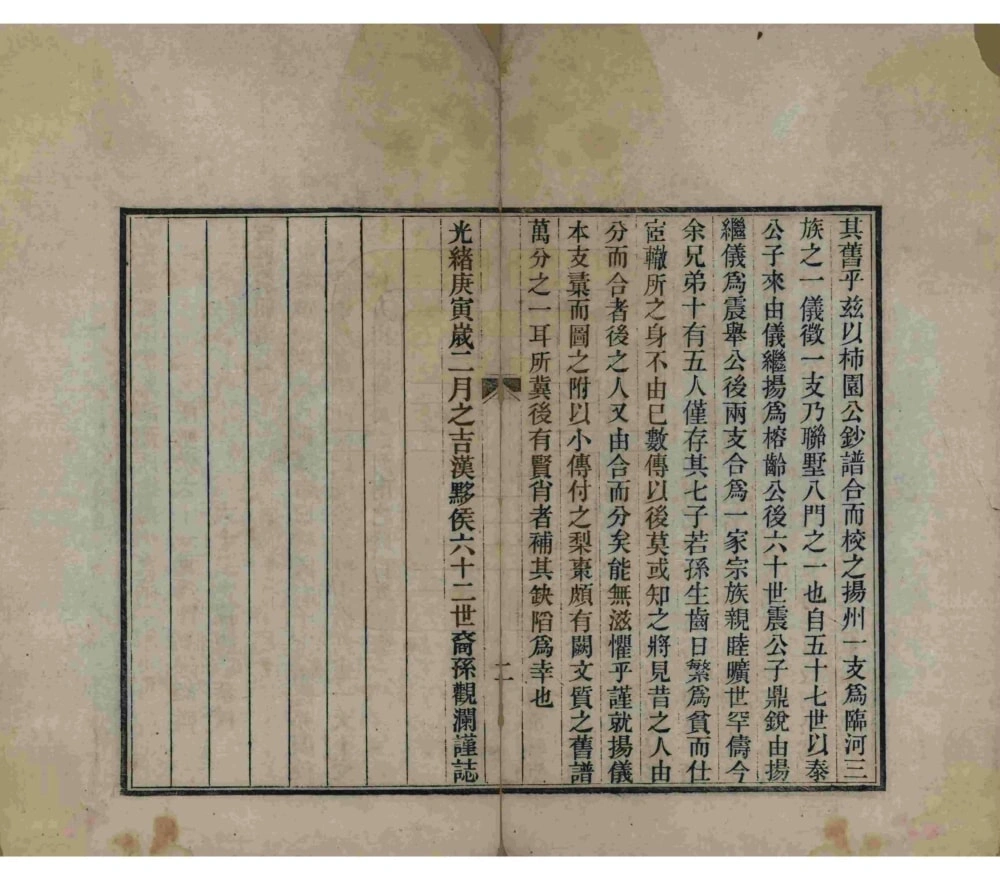 其舊乎玆以柿園公鈔譜合而校之揚州一支爲臨河三
族之一儀徵一支乃聯墅八門之一也自五十七世以泰
公子來由儀繼揚爲榕齡公後六十世震公子鼎銳由揚
繼儀爲震舉公後兩支合爲一家宗族親睦曠世罕儔今
余兄弟十有五人僅存其七子若孫生齒日繁爲貧而仕
宦轍所之身不由已數傳以後莫或知之將見昔之人由
分而合者後之人又由合而分矣能無滋懼乎謹就揚儀
本支彙而圖之附以小傳付之梨棗頗有闕文質之舊譜
萬分之一耳所冀後有賢肖者補其缺陷爲幸也
二
光緒庚寅歲二月之吉漢黟侯六十二世裔孫觀瀾謹誌